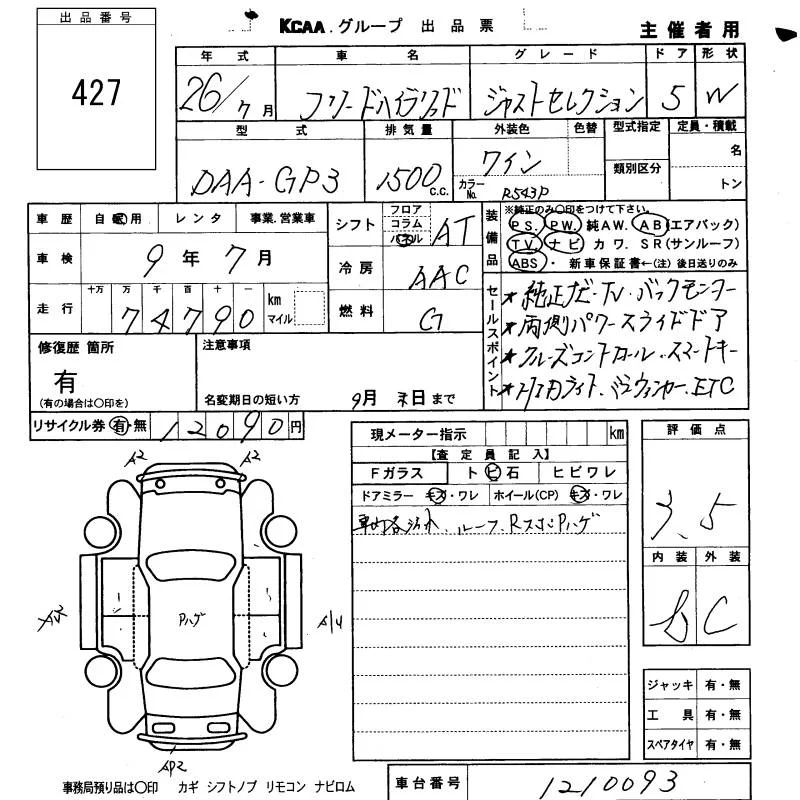 出品番号
427
KCAA.グループ 出品票
主催者用
年式 車名 グレード ドア 形状
26/7月 フリードハイブリッド ジャストセレクション 5 W
型式 排気量 外装色 色替 型式指定 定員・積載
DAA-GP3 1500c.c. ワイン 類別区分 名
カラーNo. R543P トン
車歴 自家用 レンタ 事業.営業車
車検 9年7月
走行 十万 万 千 百 十 一
74790 km マイル
シフト フロア コラム パネル AT
冷房 AAC
燃料 G
装備品
※純正のみ○印をつけて下さい。
PS. PW. 純AW. AB(エアバック)
TV. ナビ カワ. SR(サンルーフ)
ABS・ 新車保証書←(注)後日送りのみ
セールスポイント
★純正ナビ・TV・バックモニター
★両側パワースライドドア
★クルーズコントロール・スマートキー
★HIDライト・ミラーウィンカー・ETC
修復歴 箇所
有
(有の場合は○印を)
注意事項
名変期日の短い方 9月末日まで
リサイクル券 有・無 12090円
現メーター指示 km
【査定員記入】
Fガラス トビ石 ヒビワレ
ドアミラー キズ・ワレ ホイール(CP) キズ・ワレ
ルーフ、R
Pハゲ
評価点
3.5
内装 外装
b C
A2 A2
Pハゲ
ジャッキ 有・無
工具 有・無
スペアタイヤ 有・無
事務局預り品は○印 カギ シフトノブ リモコン ナビロム
車台番号 1210093